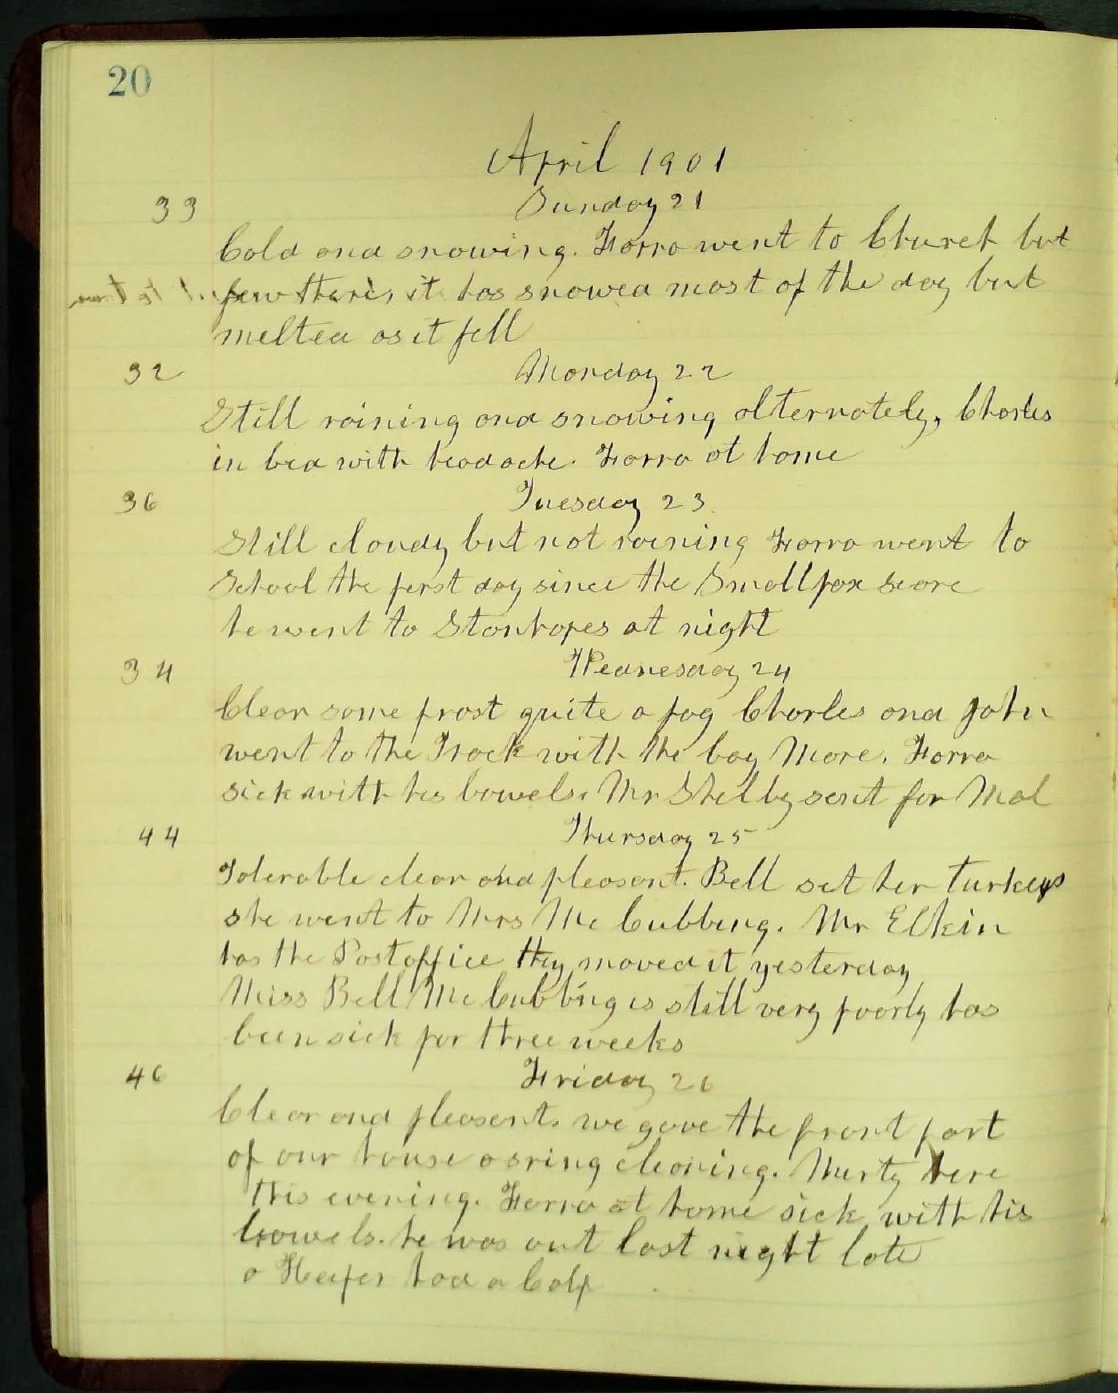 20
April 1901
Sunday 21
33
Cold and snowing. Farra went to Church but
few there, it has snowed most of the day but
melted as it fell
32
Monday 22
Still raining and snowing alternately, Charles
in bed with headache. Farra at home
36
Tuesday 23
Still cloudy but not raining Farra went to
School the first day since the Smallpox scare
he went to Stanhopes at night
34
Wednesday 24
Clear some frost quite a fog Charles and John
went to the Track with the bay Mare. Farra
sick with his bowels. Mr Shelby sent for Mal
44
Thursday 25
Tolerable clear and pleasant. Bell set her turkeys
she went to Mrs Mc Cubbing. Mr Elkin
has the Postoffice they moved it yesterday
Miss Bell Mc Cubbing is still very poorly has
been sick for three weeks
46
Friday 26
Clear and pleasent. we gave the front part
of our house a spring cleaning. here
this evening. Farra at home sick with his
bowels. he was out last night late
a Heifer had a Calf